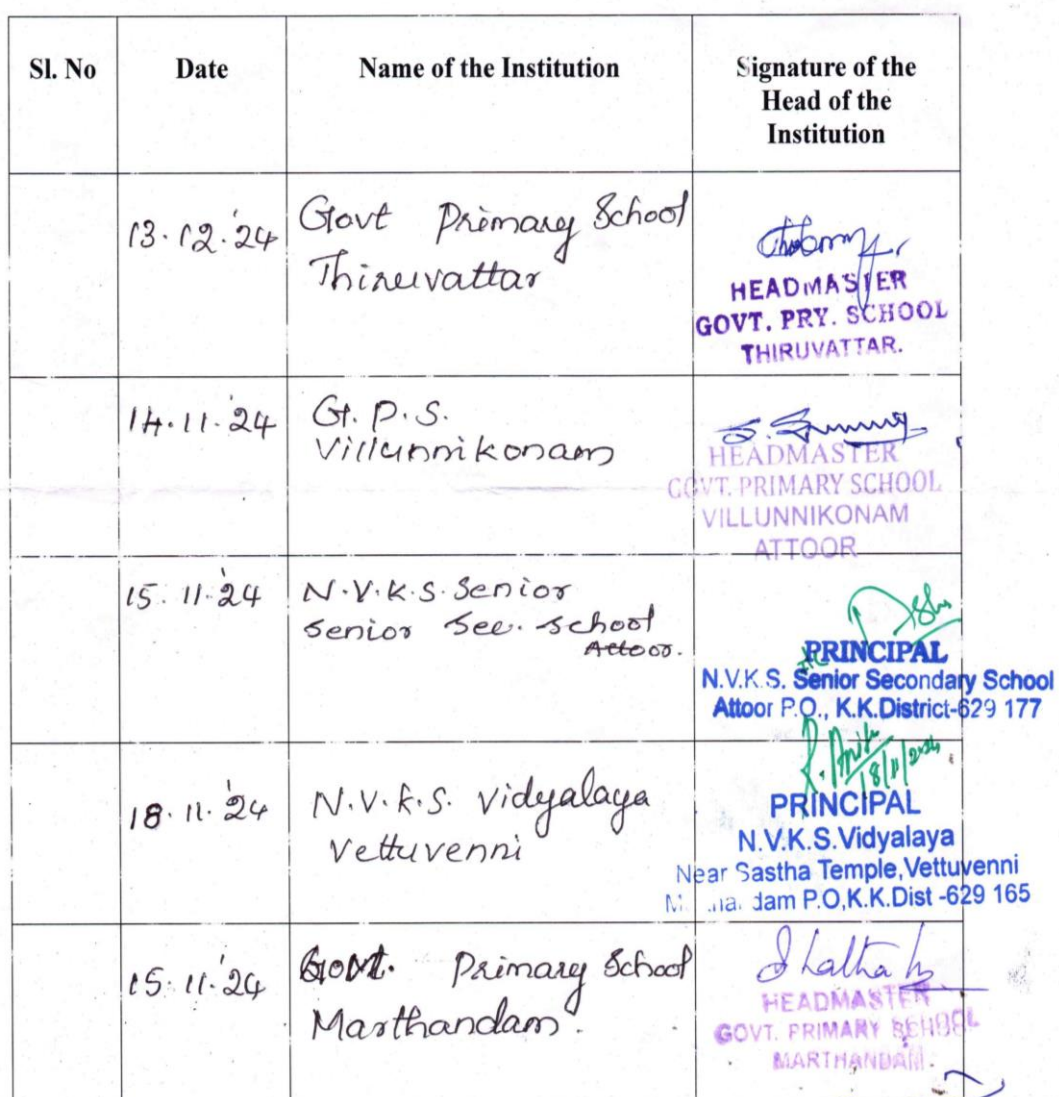 Sl. No Date Name of the Institution Signature of the
Head of the
Institution
13.12.'24 Govt Primary School
Thiruvattar
HEADMASTER
GOVT. PRY. SCHOOL
THIRUVATTAR.
14.11.'24 G.P.S.
Villunnikonam
HEADMASTER
GOVT. PRIMARY SCHOOL
VILLUNNIKONAM
ATTOOR
15.11.'24 N.V.K.S. Senior
Senior Sec. School
Attoor.
PRINCIPAL
N.V.K.S. Senior Secondary School
Attoor P.O., K.K.District-629 177
18/11/2024
18.11.'24 N.V.K.S. Vidyalaya
Vettuvenni
PRINCIPAL
N.V.K.S.Vidyalaya
Near Sastha Temple,Vettuvenni
P.O,K.K.Dist -629 165
15.11.'24 Govt. Primary School
Marthandam.
HEADMASTER
GOVT. PRIMARY SCHOOL
MARTHANDAM.